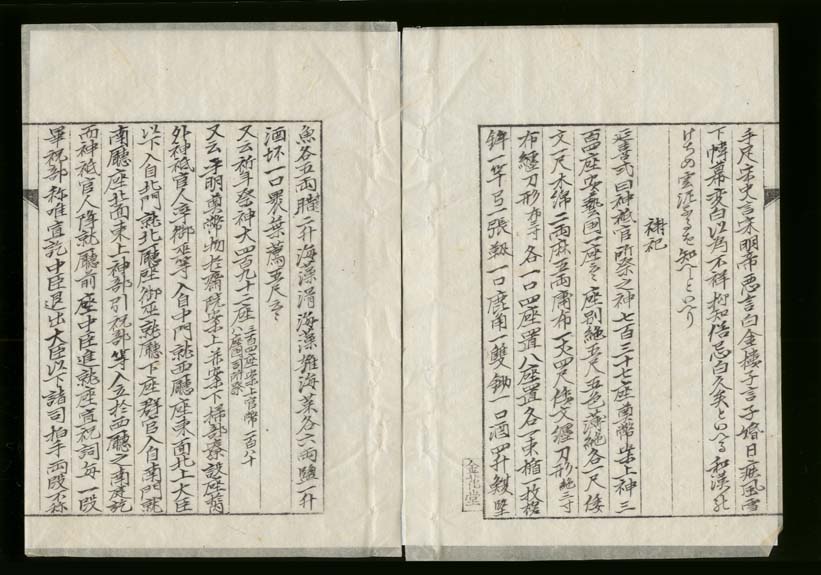 手尺宋史言宋明帝悪言白金樓子言子婚日疾風雪
下幃幕変白以為不祥
忌白久矣といへる和漢の
知へしといへり
補祀
延喜式曰神祇官所祭之神七百三十七座奠幣案上神三
百四座安藝国一座云々座別絁五尺五色薄絁各一尺倭
文一尺木綿二両麻五両庸布一丈四尺倭文纏刀形絁三寸
布纏刀形布三寸各一口四座置八座置各一束楯一枚槍
鉾一竿弓一張靫一口鹿角一隻鍬一口酒四升鰒堅
金花堂
魚各五両腊二升海藻滑海藻雜海菜各六両塩一升
酒坏一口褁葉薦五尺云々
又云祈年祭神大四百九十二座三百四座案上官幣一百八十
八座国司所祭
又云平明奠幣物於齋院案上并案下掃部寮設座
外神祇官人率御巫等入自中門就西廳座東面北上大臣
以下入自北門就北廳座御巫就廳下座群官入自南門就
南廳座北面東上神部引祝部等入立於西廳之南庭訖
而神祇官人降就廳前座中臣進就座宣祝詞毎一段
畢祝部称唯宣訖中臣退出大臣以下諸司拍手両段不称